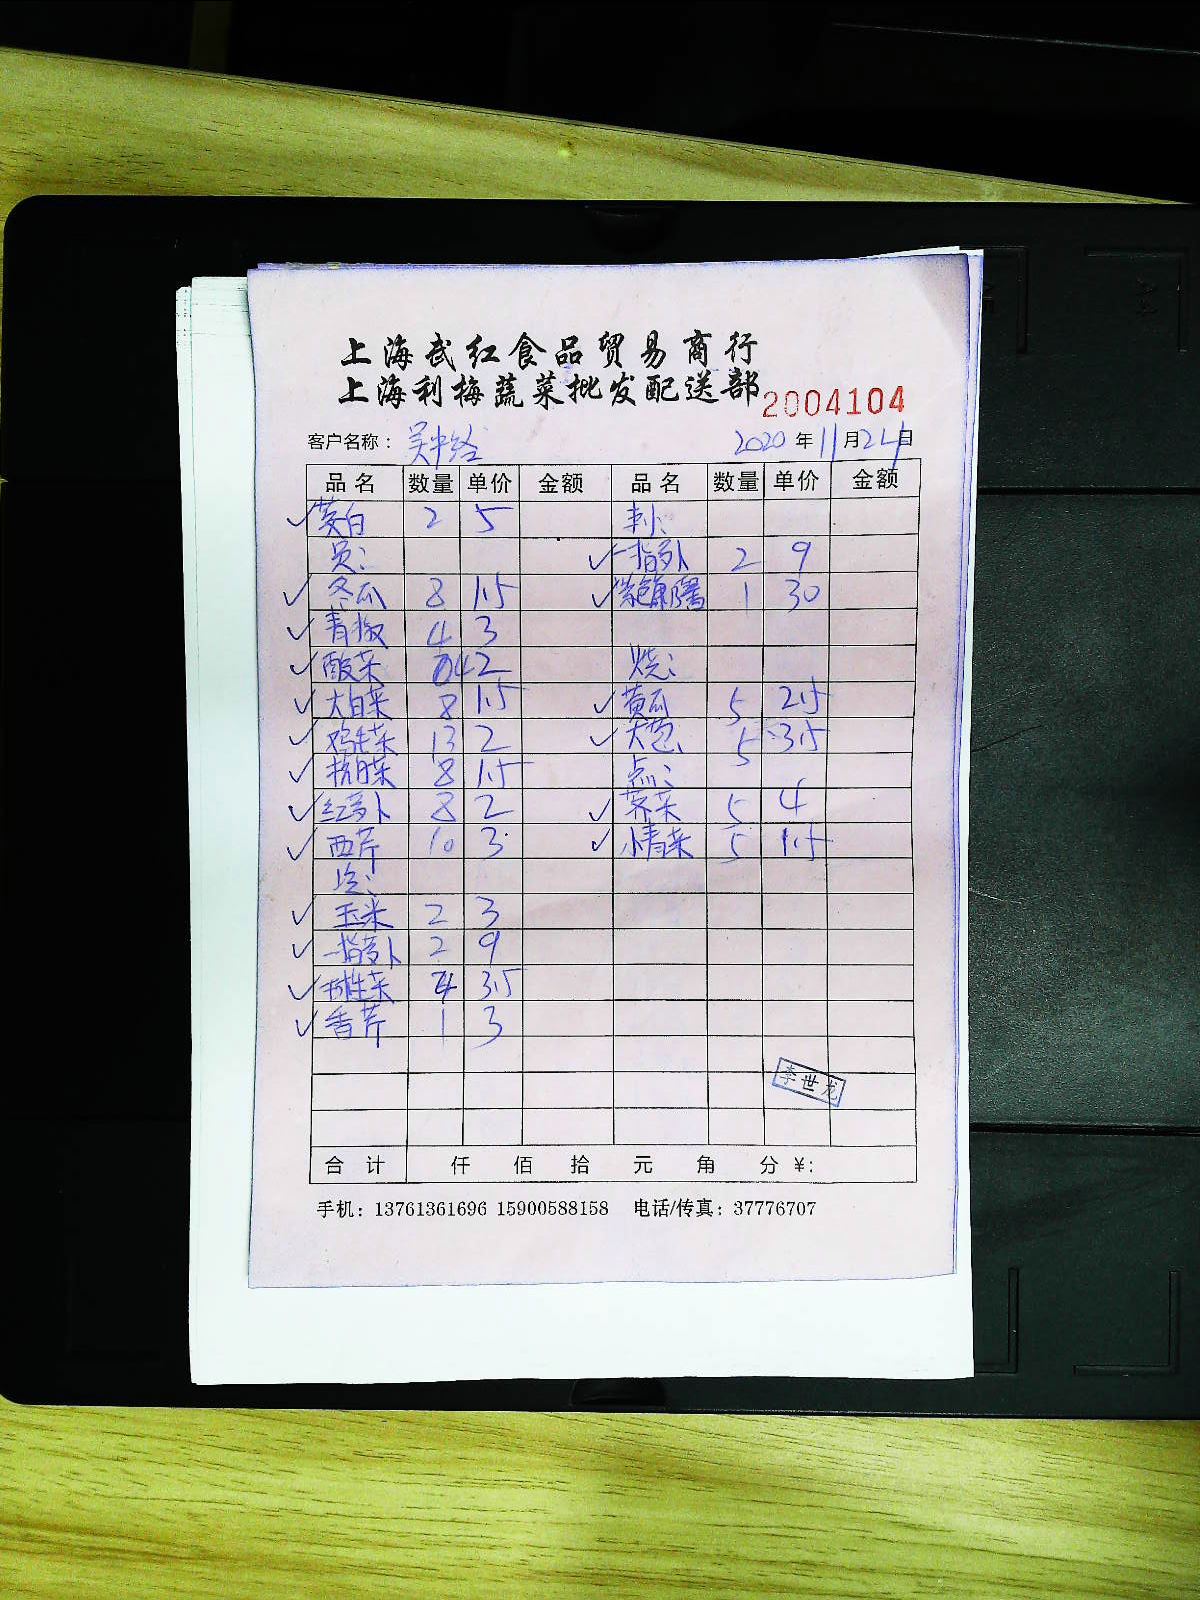 上海武红食品贸易商行
上海利梅蔬菜批发配送部 2004104
客户名称： 吴中路 2020 年 11 月 24 日
品名 数量 单价 金额 品名 数量 单价 金额
✓茭白 2 5
员：
✓一指萝卜 2 9
✓冬瓜 8 1.5 1 30
✓青椒 4 3
✓酸菜 42 烧：
✓大白菜 8 1.5 ✓黄瓜 5 2.5
✓鸡毛菜 13 2 ✓大葱 5 3.5
✓杭白菜 8 1.5 点：
✓红萝卜 8 2 ✓荠菜 5 4
✓西芹 10 3 ✓小青菜 5 1.5
冷：
✓玉米 2 3
✓一指萝卜 2 9
✓ 4 3.5
✓香芹 1 3
李世龙
合计 仟 佰 拾 元 角 分 ¥：
手机：13761361696 15900588158 电话/传真：37776707